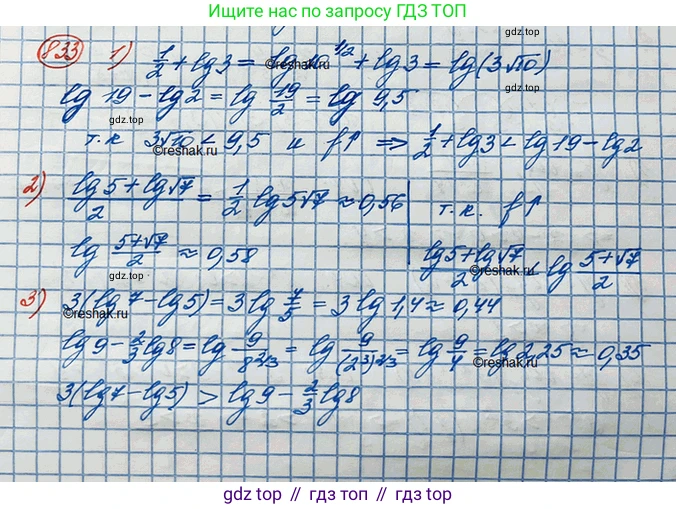 Ищите нас по запросу ГДЗ ТОП
833 1) 1/2 + lg 3 = lg 10^{1/2} + lg 3 = lg(3√10)
gdz.top
lg 19 - lg 2 = lg 19/2 = lg 9,5
т.к 3√10 < 9,5 и f↑ => 1/2 + lg 3 < lg 19 - lg 2
©reshak.ru
©reshak.ru
2) (lg 5 + lg √7)/2 = 1/2 lg 5√7 ≈ 0,56 т.к. f↑
gdz.top
gdz.top
lg (5+√7)/2 ≈ 0,58 (lg 5 + lg √7)/2 < lg (5+√7)/2
©reshak.ru
gdz.top
3) 3(lg 7 - lg 5) = 3 lg 7/5 = 3 lg 1,4 ≈ 0,44
©reshak.ru
lg 9 - 2/3 lg 8 = lg 9/8^{2/3} = lg 9/(2^3)^{2/3} = lg 9/4 = lg 2,25 ≈ 0,35
©reshak.ru
3(lg 7 - lg 5) > lg 9 - 2/3 lg 8
gdz.top // гдз топ // gdz.top